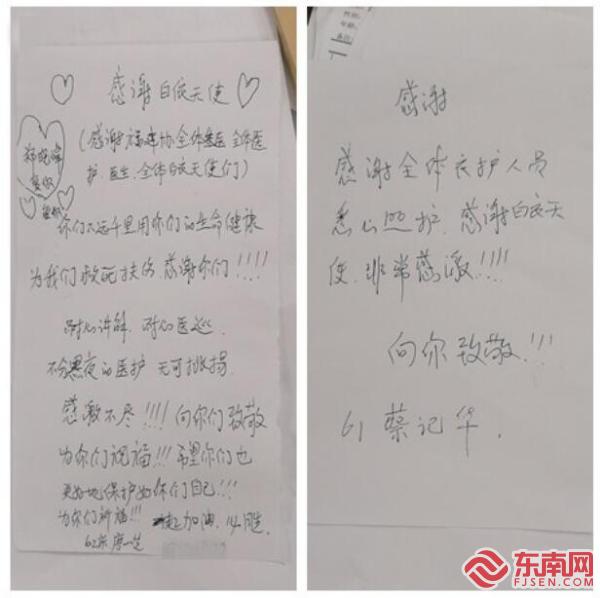 感谢白衣天使
(感谢福建协全体医 全体医
护、医生、全体白衣天使们)
你们不远千里用你们的生命健康
为我们救死扶伤、感谢你们!!!!
耐心讲解、耐心医巡、
不分黑夜的医护 无可挑
感激不尽!!!!向你们致敬
为你们祝福!!!希望你们也
更好地保护好你们自己!!!
为你们祈福!!! 加油、
62床
感谢
感谢全体衣护人员
悉心照护、感谢白衣天
使、非常感激!!!!
向你致敬!!!
61蔡记华.
东南网
FJSEN.COM